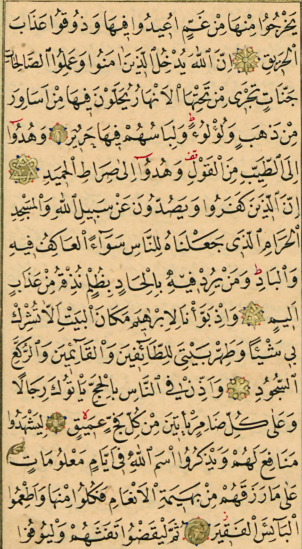 يَخْرُجُوا مِنْهَا مِنْ غَمٍّ اُعِيدُوا فِيهَا وَذُوقُوا عَذَابَ
الْحَرِيقِ اِنَّ اللّٰهَ يُدْخِلُ الَّذِينَ اٰمَنُوا وَعَمِلُوا الصَّالِحَاتِ
جَنَّاتٍ تَجْرِى مِنْ تَحْتِهَا الْاَنْهَارُ يُحَلَّوْنَ فِيهَا مِنْ اَسَاوِرَ
مِنْ ذَهَبٍ وَلُؤْلُؤًا وَلِبَاسُهُمْ فِيهَا حَرِيرٌ وَهُدُوا
اِلَى الطَّيِّبِ مِنَ الْقَوْلِ وَهُدُوا اِلٰى صِرَاطِ الْحَمِيدِ
اِنَّ الَّذِينَ كَفَرُوا وَيَصُدُّونَ عَنْ سَبِيلِ اللّٰهِ وَالْمَسْجِدِ
الْحَرَامِ الَّذِى جَعَلْنَاهُ لِلنَّاسِ سَوَآءً الْعَاكِفُ فِيهِ
وَالْبَادِ وَمَنْ يُرِدْ فِيهِ بِاِلْحَادٍ بِظُلْمٍ نُذِقْهُ مِنْ عَذَابٍ
اَلِيمٍ وَاِذْ بَوَّأْنَا لِاِبْرٰهِيمَ مَكَانَ الْبَيْتِ اَنْ لَا تُشْرِكْ
بِى شَيْئًا وَطَهِّرْ بَيْتِىَ لِلطَّآئِفِينَ وَالْقَآئِمِينَ وَالرُّكَّعِ
السُّجُودِ وَاَذِّنْ فِى النَّاسِ بِالْحَجِّ يَأْتُوكَ رِجَالًا
وَعَلٰى كُلِّ ضَامِرٍ يَأْتِينَ مِنْ كُلِّ فَجٍّ عَمِيقٍ لِيَشْهَدُوا
مَنَافِعَ لَهُمْ وَيَذْكُرُوا اسْمَ اللّٰهِ فِى اَيَّامٍ مَعْلُومَاتٍ
عَلٰى مَا رَزَقَهُمْ مِنْ بَهِيمَةِ الْاَنْعَامِ فَكُلُوا مِنْهَا وَاَطْعِمُوا
الْبَآئِسَ الْفَقِيرَ ثُمَّ لْيَقْضُوا تَفَثَهُمْ وَلْيُوفُوا